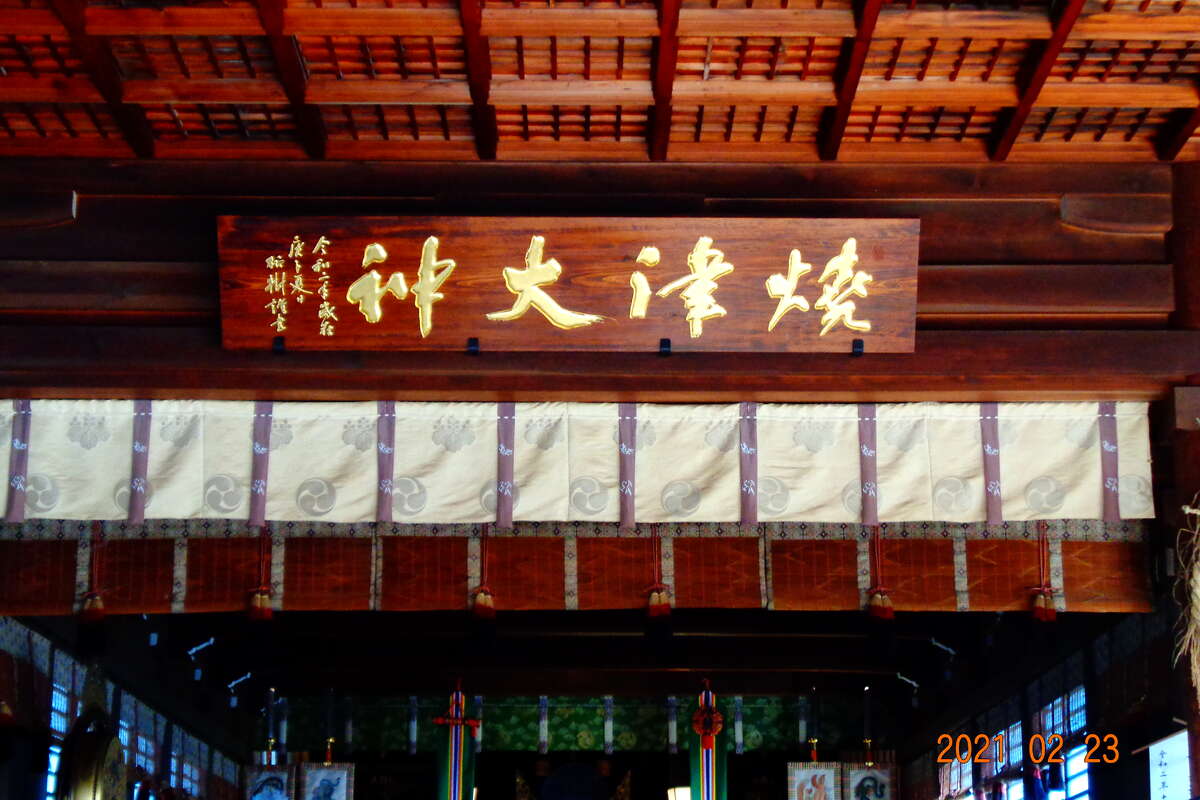 燒津大神
令和二年歲在
庚子夏日
2021 02 23